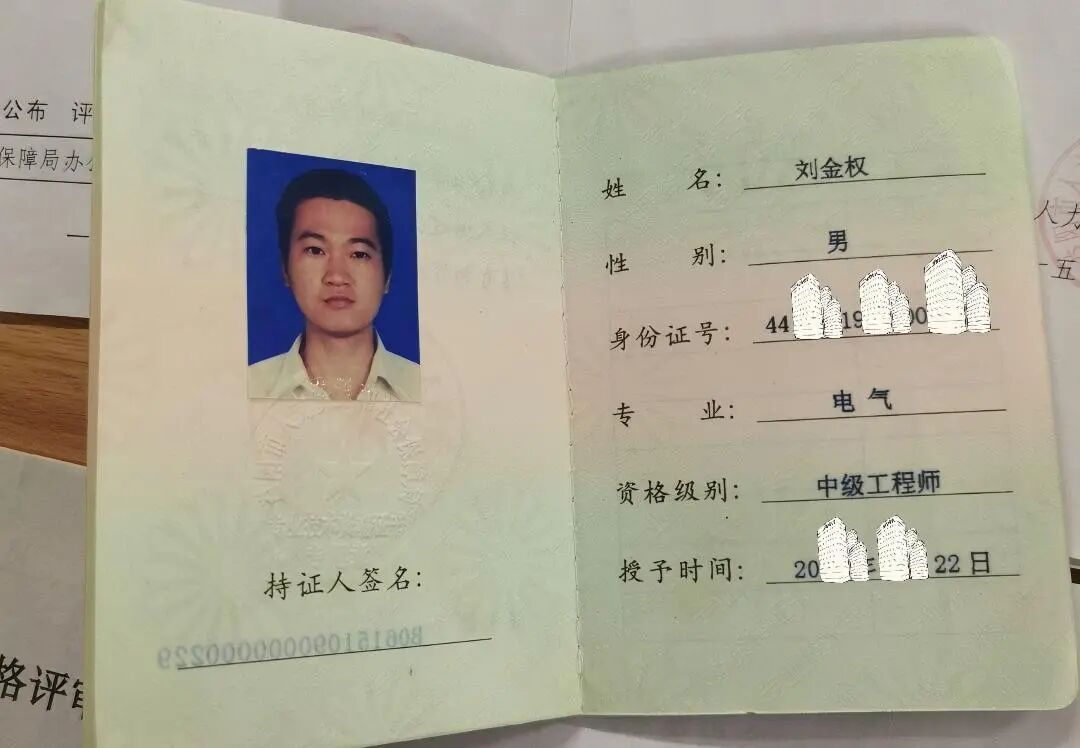 公布 评
保障局办
持证人签名：
B06151090000000229
姓 名： 刘金权
性 别： 男
身份证号： 44 19 00
专 业： 电 气
资格级别： 中级工程师
授予时间： 20 年 22 日
人力
五
格评审